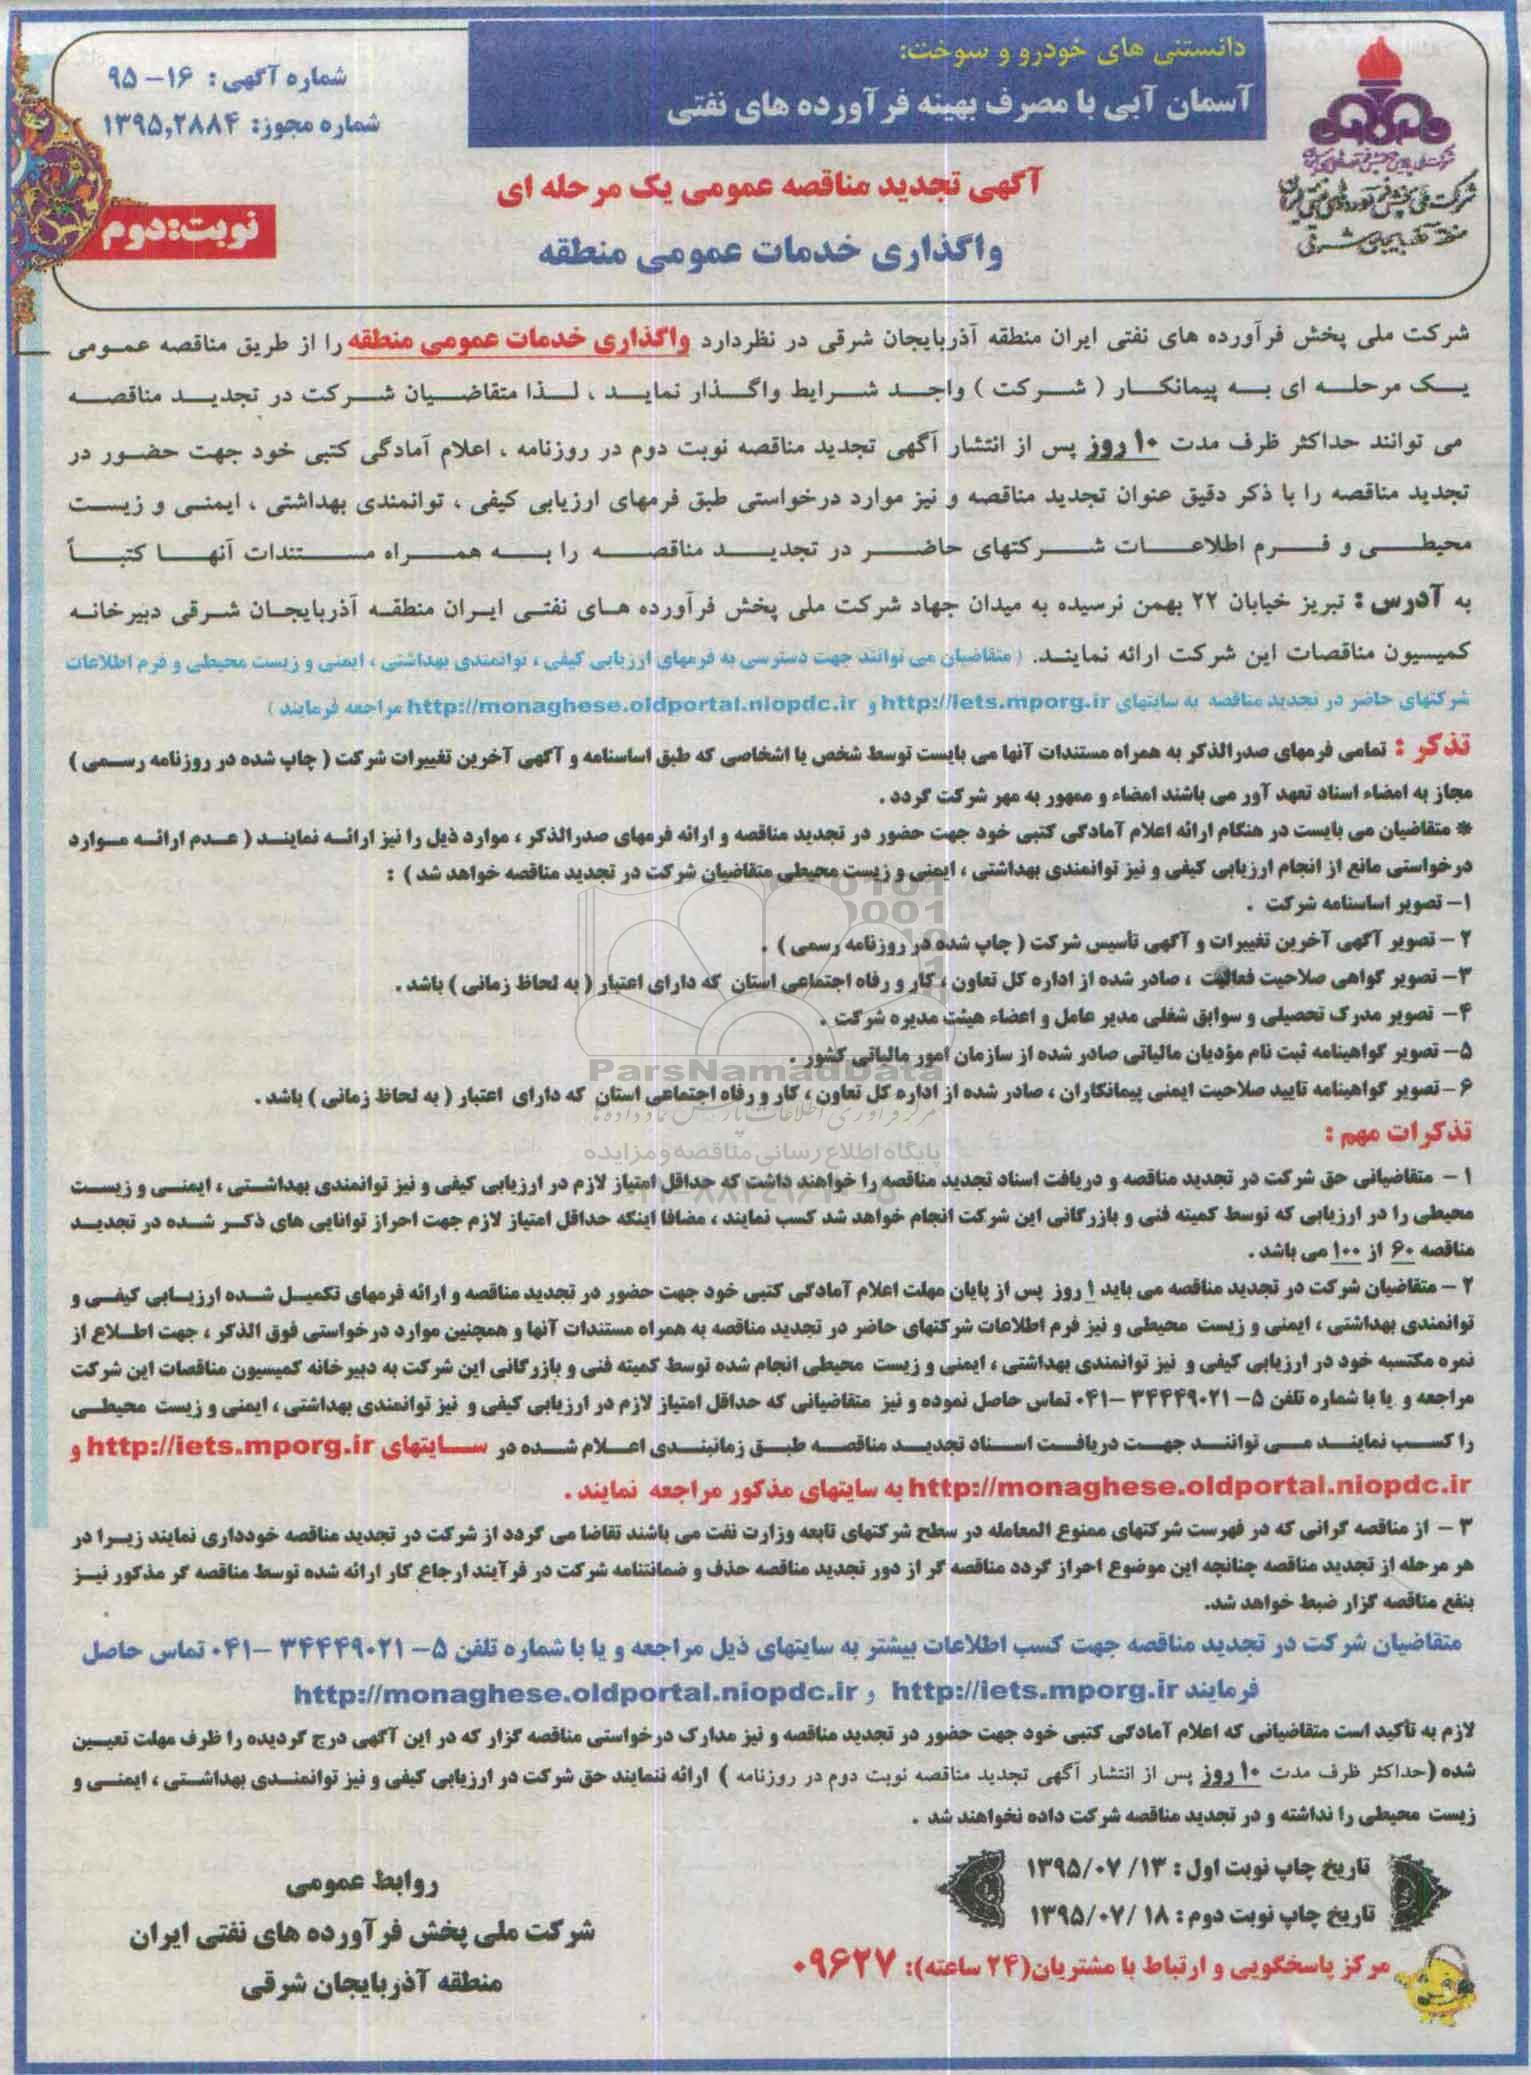 دانستنی های خودرو و سوخت:
آسمان آبی با مصرف بهینه فرآورده های نفتی
شماره آگهی : ۱۶- ۹۵
شماره مجوز: ۱۳۹۵,۲۸۸۴
نوبت:دوم
شرکت ملی پخش فرآورده های نفتی ایران
منطقه آذربایجان شرقی
آگهی تجدید مناقصه عمومی یک مرحله ای
واگذاری خدمات عمومی منطقه
شرکت ملی پخش فرآورده های نفتی ایران منطقه آذربایجان شرقی در نظردارد واگذاری خدمات عمومی منطقه را از طریق مناقصه عمـومی
یـک مرحلـه ای بـه پیمانکـار ( شـرکت ) واجـد شـرایط واگـذار نمایـد ، لـذا متقاضـیان شـرکت در تجدیـد مناقصـه
می توانند حداکثر ظرف مدت ۱۰ روز پس از انتشار آگهی تجدید مناقصه نوبت دوم در روزنامه ، اعلام آمادگی کتبی خود جهت حضـور در
تجدید مناقصه را با ذکر دقیق عنوان تجدید مناقصه و نیز موارد درخواستی طبق فرمهای ارزیابی کیفی ، توانمندی بهداشتی ، ایمنـی و زیسـت
محیطـی و فـرم اطلاعـات شـرکتهای حاضـر در تجدیـد مناقصـه را بـه همـراه مسـتندات آنهـا کتبـاً
به آدرس : تبریز خیابان ۲۲ بهمن نرسیده به میدان جهاد شرکت ملی پخش فرآورده هـای نفتـی ایـران منطقـه آذربایجـان شـرقی دبیرخانـه
کمیسیون مناقصات این شرکت ارائه نماینـد. ( متقاضیان می توانند جهت دسترسی به فرمهای ارزیابی کیفی ، توانمندی بهداشتی ، ایمنی و زیست محیطی و فرم اطلاعات
شرکتهای حاضر در تجدید مناقصه به سایتهای http://iets.mporg.ir و http://monaghese.oldportal.niopdc.ir مراجعه فرمایند )
تذکر : تمامی فرمهای صدرالذکر به همراه مستندات آنها می بایست توسط شخص یا اشخاصی که طبق اساسنامه و آگهی آخرین تغییرات شرکت ( چاپ شده در روزنامه رسـمی )
مجاز به امضاء اسناد تعهد آور می باشند امضاء و ممهور به مهر شرکت گردد .
* متقاضیان می بایست در هنگام ارائه اعلام آمادگی کتبی خود جهت حضور در تجدید مناقصه و ارائه فرمهای صدرالذکر ، موارد ذیل را نیز ارائـه نماینـد ( عـدم ارائـه مـوارد
درخواستی مانع از انجام ارزیابی کیفی و نیز توانمندی بهداشتی ، ایمنی و زیست محیطی متقاضیان شرکت در تجدید مناقصه خواهد شد ) :
۱- تصویر اساسنامه شرکت .
۲ - تصویر آگهی آخرین تغییرات و آگهی تأسیس شرکت ( چاپ شده در روزنامه رسمی ) .
۳- تصویر گواهی صلاحیت فعالیت ، صادر شده از اداره کل تعاون ، کار و رفاه اجتماعی استان که دارای اعتبار ( به لحاظ زمانی ) باشد .
۴- تصویر مدرک تحصیلی و سوابق شغلی مدیر عامل و اعضاء هیئت مدیره شرکت .
۵- تصویر گواهینامه ثبت نام مؤدیان مالیاتی صادر شده از سازمان امور مالیاتی کشور .
ParsNamadData
۶ - تصویر گواهینامه تایید صلاحیت ایمنی پیمانکاران ، صادر شده از اداره کل تعاون ، کار و رفاه اجتماعی استان که دارای اعتبار ( به لحاظ زمانی ) باشد .
مرکز فرآوری اطلاعات پارس نماد داده ها
تذکرات مهم :
پایگاه اطلاع رسانی مناقصه و مزایده
۱ - متقاضیانی حق شرکت در تجدید مناقصه و دریافت اسناد تجدید مناقصه را خواهند داشت که حداقل امتیاز لازم در ارزیابی کیفی و نیز توانمندی بهداشـتی ، ایمنـی و زیسـت
محیطی را در ارزیابی که توسط کمیته فنی و بازرگانی این شرکت انجام خواهد شد کسب نمایند ، مضافا اینکه حداقل امتیاز لازم جهت احراز توانایی های ذکـر شـده در تجدیـد
مناقصه ۶۰ از ۱۰۰ می باشد .
۲ - متقاضیان شرکت در تجدید مناقصه می باید ۱ روز پس از پایان مهلت اعلام آمادگی کتبی خود جهت حضور در تجدید مناقصه و ارائه فرمهای تکمیـل شـده ارزیـابی کیفـی و
توانمندی بهداشتی ، ایمنی و زیست محیطی و نیز فرم اطلاعات شرکتهای حاضر در تجدید مناقصه به همراه مستندات آنها و همچنین موارد درخواستی فوق الذکر ، جهت اطـلاع از
نمره مکتسبه خود در ارزیابی کیفی و نیز توانمندی بهداشتی ، ایمنی و زیست محیطی انجام شده توسط کمیته فنی و بازرگانی این شرکت به دبیرخانه کمیسیون مناقصات این شرکت
مراجعه و یا با شماره تلفن ۵- ۳۴۴۴۹۰۲۱ -۰۴۱ تماس حاصل نموده و نیز متقاضیانی که حداقل امتیاز لازم در ارزیابی کیفی و نیز توانمندی بهداشتی ، ایمنی و زیست محیطـی
را کسـب نماینـد مـی تواننـد جهـت دریافـت اسـناد تجدیـد مناقصـه طبـق زمانبنـدی اعـلام شـده در سـایتهای http://iets.mporg.ir و
http://monaghese.oldportal.niopdc.ir به سایتهای مذکور مراجعه نمایند .
۳ - از مناقصه گرانی که در فهرست شرکتهای ممنوع المعامله در سطح شرکتهای تابعه وزارت نفت می باشند تقاضا می گردد از شرکت در تجدید مناقصه خودداری نمایند زیـرا در
هر مرحله از تجدید مناقصه چنانچه این موضوع احراز گردد مناقصه گر از دور تجدید مناقصه حذف و ضمانتنامه شرکت در فرآیند ارجاع کار ارائه شده توسط مناقصه گر مذکور نیـز
بنفع مناقصه گزار ضبط خواهد شد.
متقاضیان شرکت در تجدید مناقصه جهت کسب اطلاعات بیشتر به سایتهای ذیل مراجعه و یا با شماره تلفن ۵- ۳۴۴۴۹۰۲۱ -۰۴۱ تماس حاصل
فرمایند http://iets.mporg.ir و http://monaghese.oldportal.niopdc.ir
لازم به تأکید است متقاضیانی که اعلام آمادگی کتبی خود جهت حضور در تجدید مناقصه و نیز مدارک درخواستی مناقصه گزار که در این آگهی درج گردیده را ظرف مهلت تعیـین
شده (حداکثر ظرف مدت ۱۰ روز پس از انتشار آگهی تجدید مناقصه نوبت دوم در روزنامه ) ارائه ننمایند حق شرکت در ارزیابی کیفی و نیز توانمنـدی بهداشـتی ، ایمنـی و
زیست محیطی را نداشته و در تجدید مناقصه شرکت داده نخواهند شد .
تاریخ چاپ نوبت اول : ۱۳ /۱۳۹۵/۰۷
تاریخ چاپ نوبت دوم : ۱۸ /۱۳۹۵/۰۷
مرکز پاسخگویی و ارتباط با مشتریان(۲۴ ساعته): ۰۹۶۲۷
روابط عمومی
شرکت ملی پخش فرآورده های نفتی ایران
منطقه آذربایجان شرقی